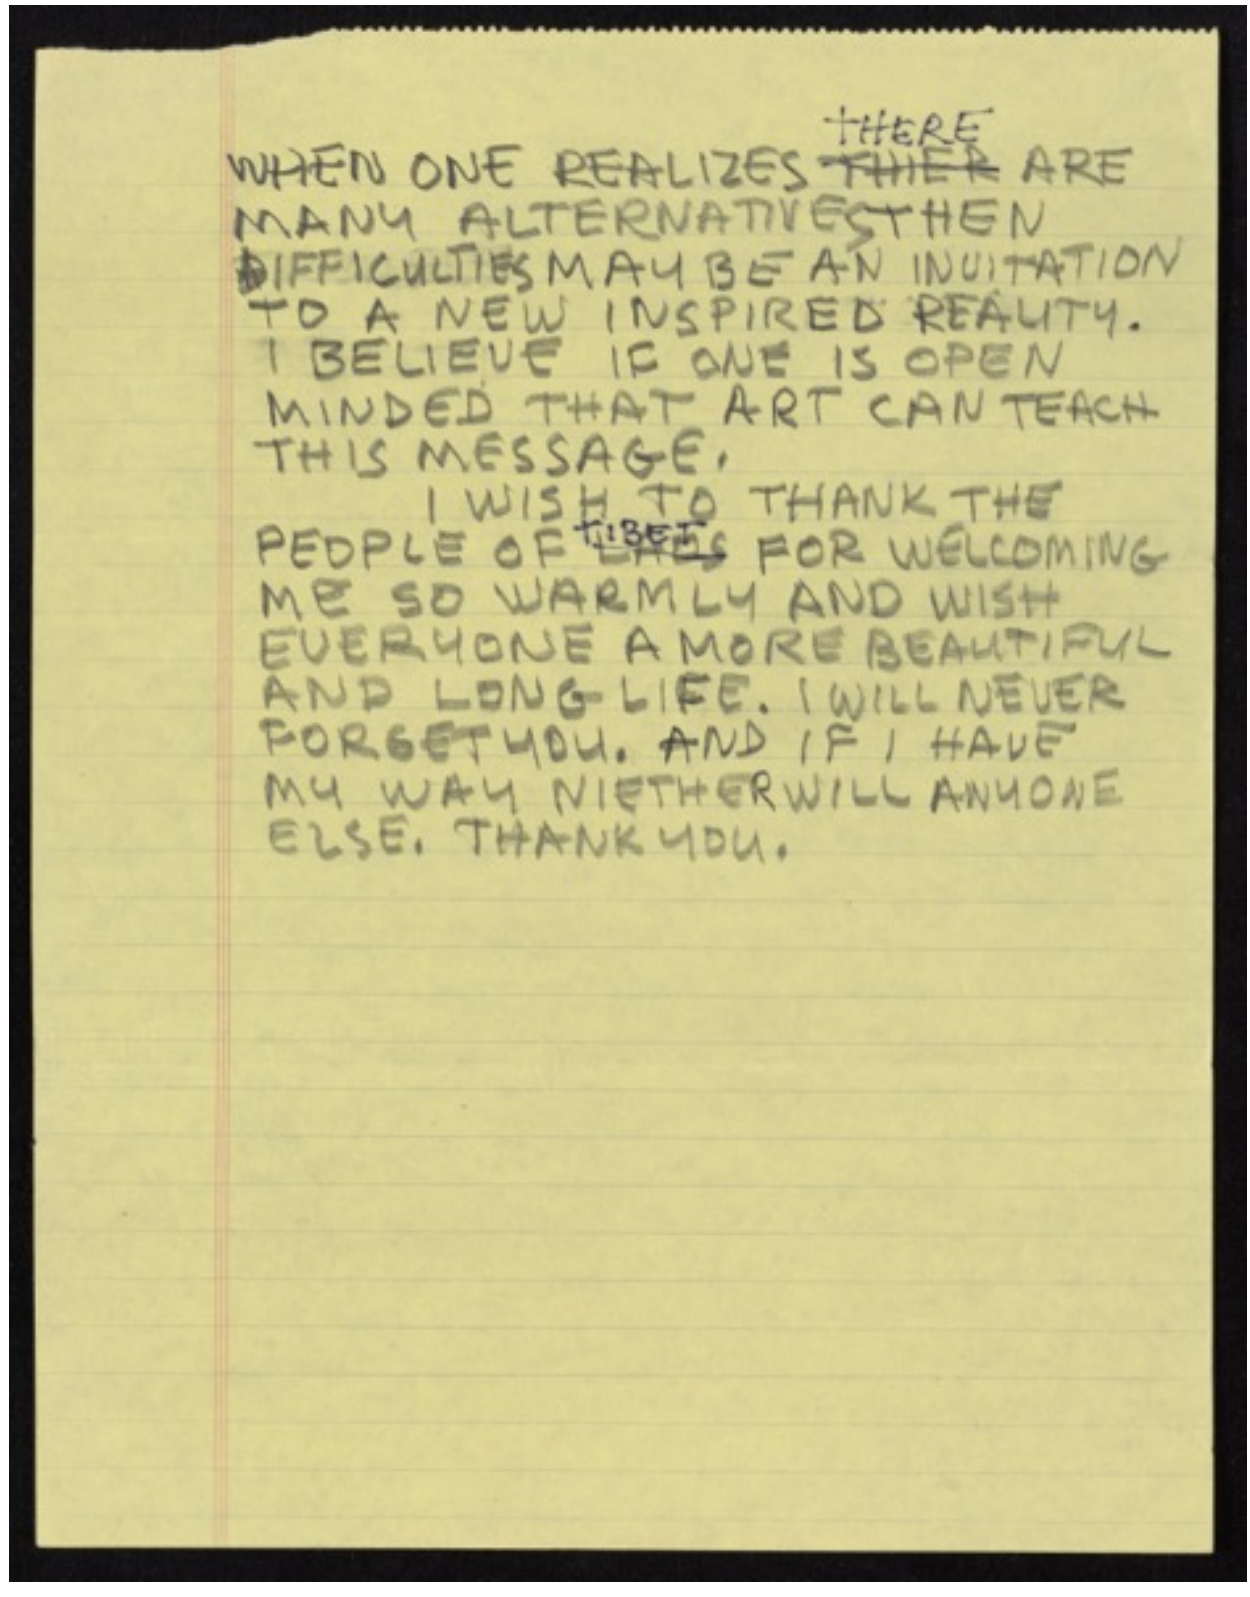 THERE
WHEN ONE REALIZES THIER ARE
MANY ALTERNATIVES THEN
DIFFICULTIES MAY BE AN INVITATION
TO A NEW INSPIRED REALITY.
I BELIEVE IF ONE IS OPEN
MINDED THAT ART CAN TEACH
THIS MESSAGE.
I WISH TO THANK THE
TIBET
PEOPLE OF LAOS FOR WELCOMING
ME SO WARMLY AND WISH
EVERYONE A MORE BEAUTIFUL
AND LONG LIFE. I WILL NEVER
FORGET YOU. AND IF I HAVE
MY WAY NIETHER WILL ANYONE
ELSE. THANK YOU.